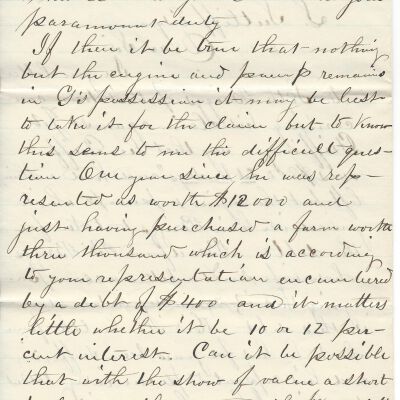 paramount duty
If then it be true that nothing
but the engine and pump remains
in G's possession it may be best
to take it for the claim but to know
this seems to me the difficult ques-
tion One year since he was rep-
resented as worth $12000 and
just having purchased a farm worth
three thousand which is according
to your representation encumbered
by a debt of $400 and it matters
little whether it be 10 or 12 per-
cent interest. Can it be possible
that with the show of value a short